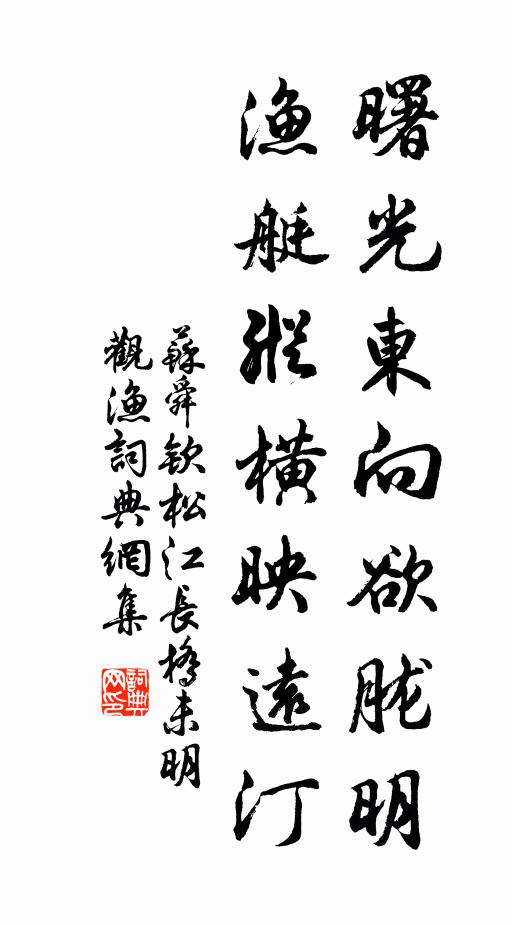 曙光東向欲朧明
漁艇縱橫映遠汀
蘇舜欽松江長橋未明
觀漁詞典網集
詞典
网印